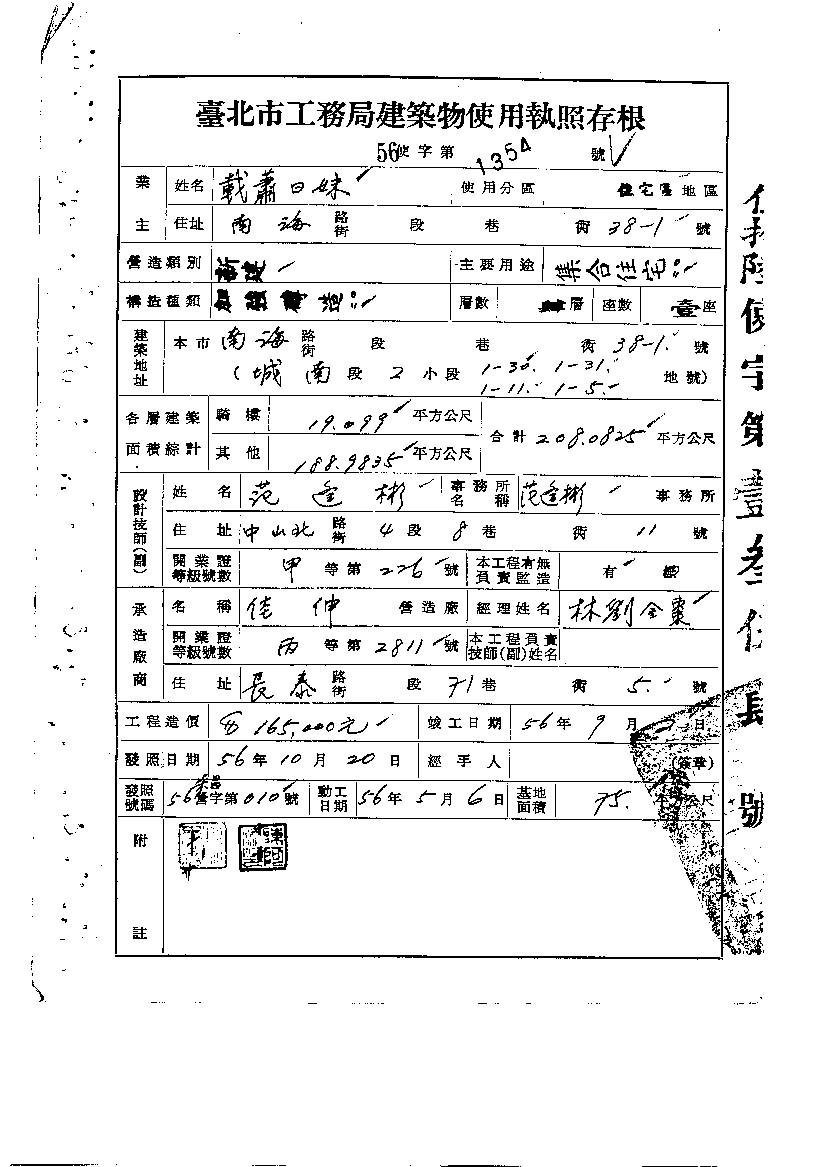 臺北市工務局建築物使用執照存根
56使字第1354號
業主 姓名 戴蕭日妹 使用分區 住宅區地區
住址 南海路街 段 巷 衖 38-1 號
營造類別 新建 主要用途 集合住宅
構造種類 加強磚造 層數 層 座數 壹座
建築地址 本市南海路街 段 巷 衖 38-1. 號
(城南段2小段 1-30. 1-31. 1-11. 1-5. 地號)
各層建築面積綜計 騎樓 19.099平方公尺 合計 208.0825平方公尺
其他 188.9835平方公尺
設計技師(副) 姓名 范逢彬 事務所名稱 范逢彬 事務所
住址 中山北路街 4段 8巷 衖 11號
開業證等級號數 甲等第226號 本工程有無負責監造 有
承造廠商 名稱 佳伸 營造廠 經理姓名 林劉全棗
開業證等級號數 丙等第2811號 本工程負責技師(副)姓名
住址 長泰路街 段 71巷 衖 5. 號
工程造價 165,000元 竣工日期 56年9月 日
發照日期 56年10月20日 經手人 (簽章)
發照號碼 56營字第010號 動工日期 56年5月6日 基地面積 75. 平方公尺
附註
使字第壹叁 號